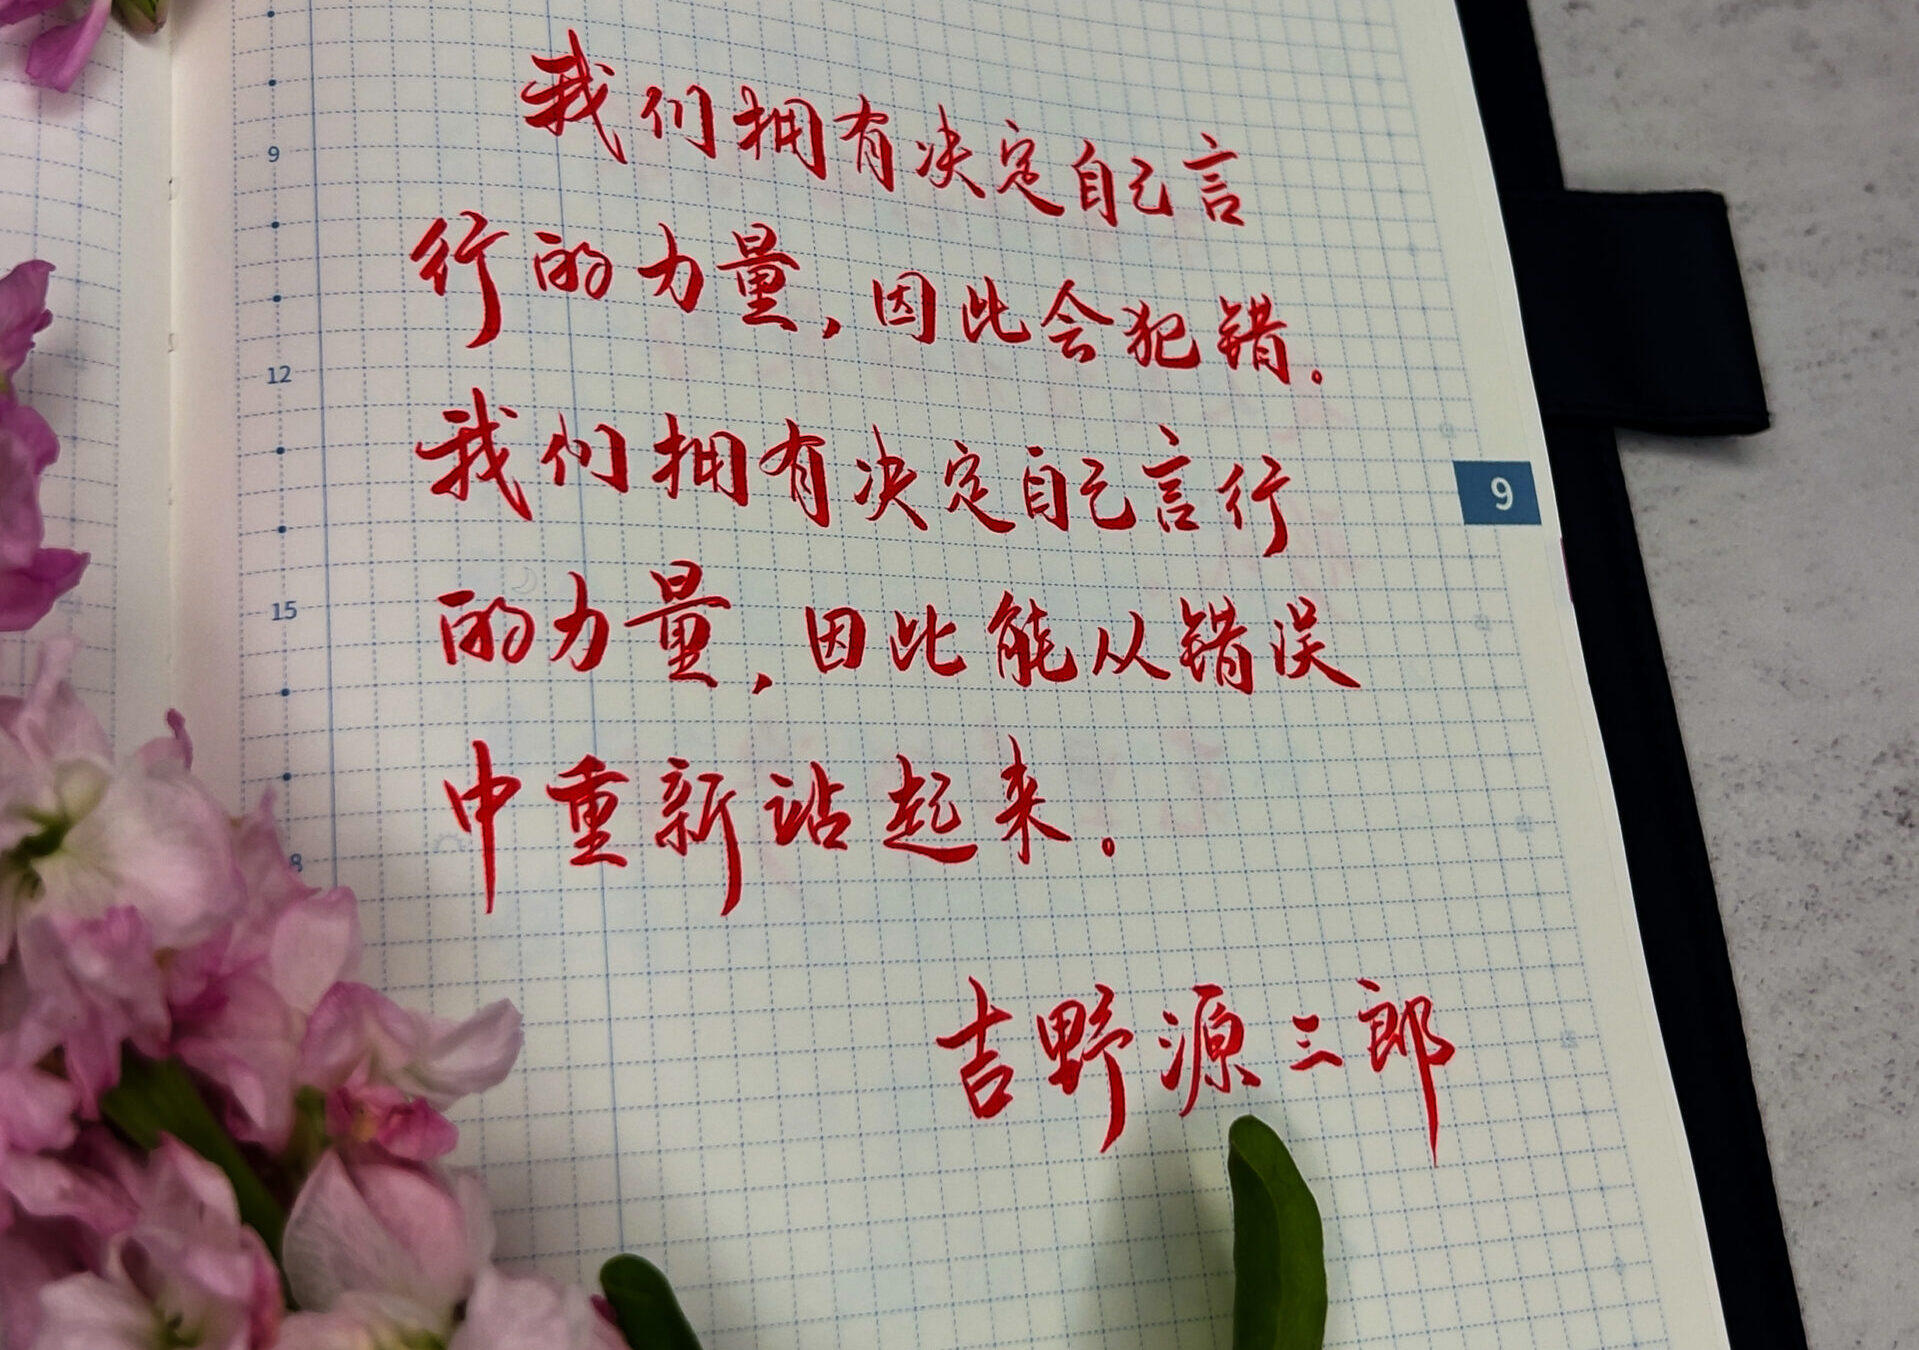 9
我们拥有决定自己言
行的力量，因此会犯错。
12
我们拥有决定自己言行
9
15
的力量，因此能从错误
中重新站起来。
8
吉野源三郎